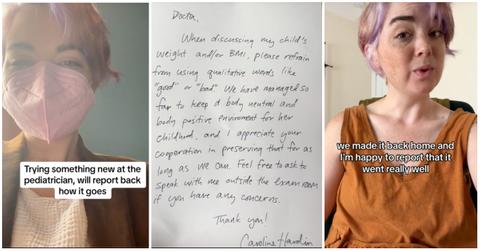 Trying something new at the
pediatrician, will report back
how it goes
Doctor,
When discussing my child's
weight and/or BMI, please refrain
from using qualitative words like
"good" or "bad" We have managed so
far to keep a body neutral and
body positive environment for her
childhood, and I appreciate your
cooperation in preserving that for as
long as we can. Feel free to ask to
speak with me outside the exam room
if you have any concerns.
Thank you!
Caroline Hardin
we made it back home and
I'm happy to report that it
went really well